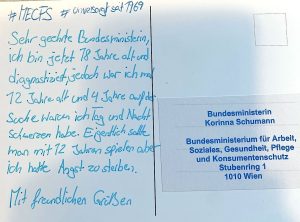 #MECFS #unversorgt seit 1969
Sehr geehrte Bundesministerin,
ich bin jetzt 18 Jahre alt und
diagnostiziert, jedoch war ich mal
12 Jahre alt und 4 Jahre auf der
Suche warum ich Tag und Nacht
schmerzen habe. Eigentlich sollte
man mit 12 Jahren spielen aber
ich hatte Angst zu sterben.
Mit freundlichen Grüßen
Bundesministerin
Korinna Schumann
Bundesministerium für Arbeit,
Soziales, Gesundheit, Pflege
und Konsumentenschutz
Stubenring 1
1010 Wien